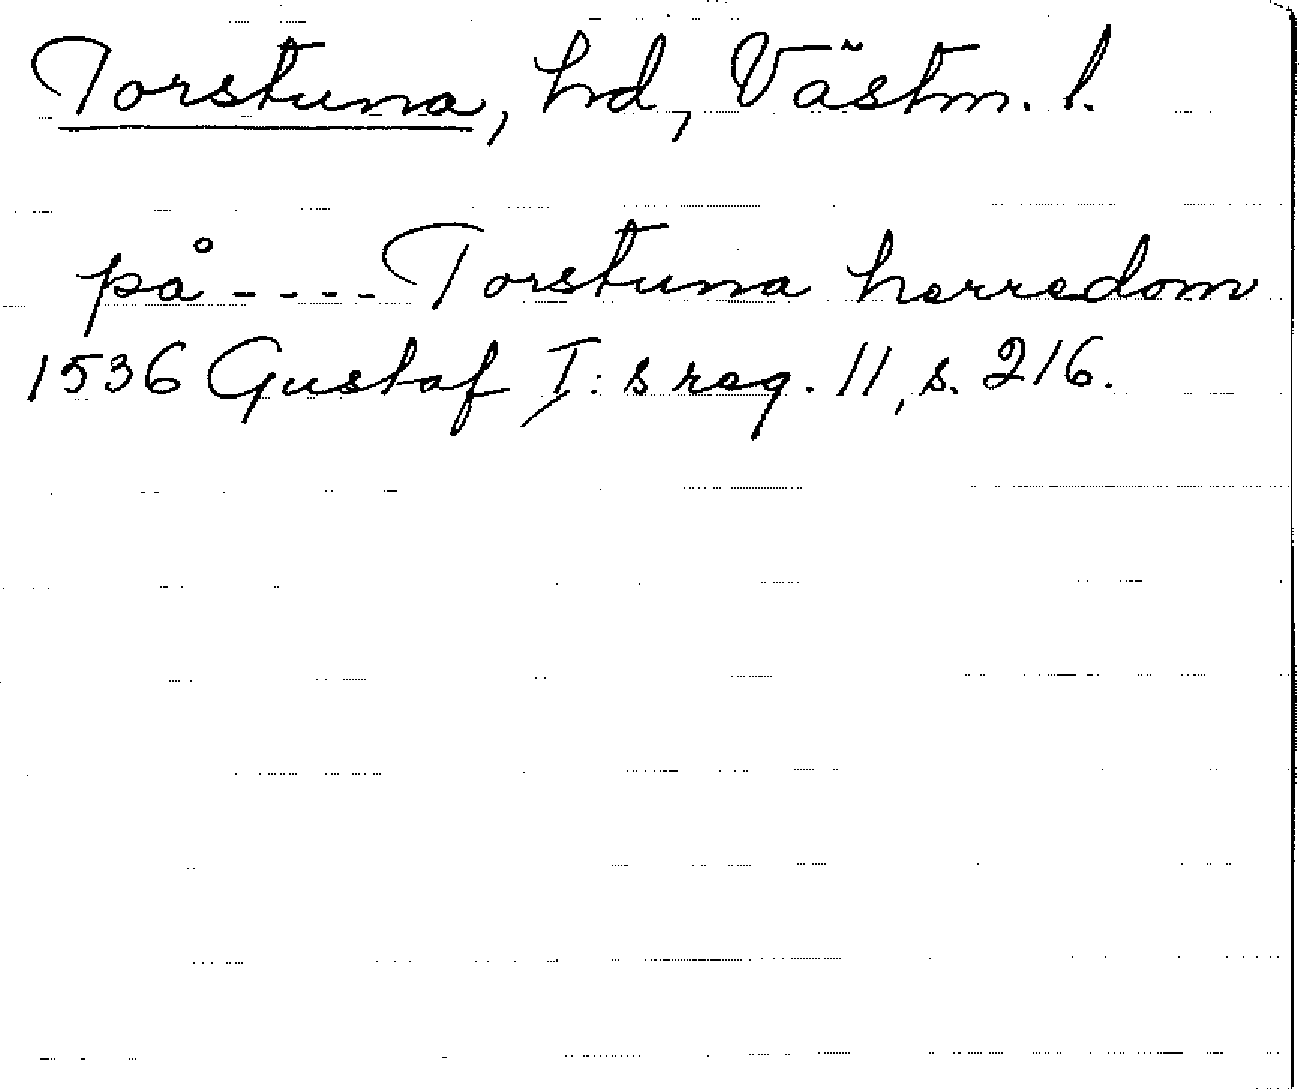 Torstuna, hd, Västm. l.
på ---- Torstuna herredom
1536 Gustaf I:s reg. 11, s. 216.